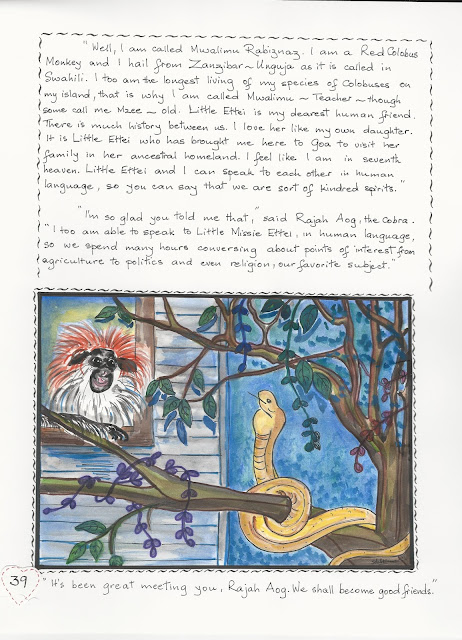 "Well, I am called Mwalimu Rabiznaz. I am a Red Colobus
Monkey and I hail from Zanzibar ~ Unguja as it is called in
Swahili. I too am the longest living of my species of Colobuses on
my island, that is why I am called Mwalimu ~ Teacher ~ though
some call me Mzee ~ old. Little Ettei is my dearest human friend.
There is much history between us. I love her like my own daughter.
It is Little Ettei who has brought me here to Goa to visit her
family in her ancestral homeland. I feel like I am in seventh
heaven. Little Ettei and I can speak to each other in human
language, so you can say that we are sort of kindred spirits."
"I'm so glad you told me that," said Rajah Aog, the Cobra.
"I too am able to speak to Little Missie Ettei, in human language,
so we spend many hours conversing about points of interest from
agriculture to politics and even religion, our favorite subject."
39
"It's been great meeting you, Rajah Aog. We shall become good friends."